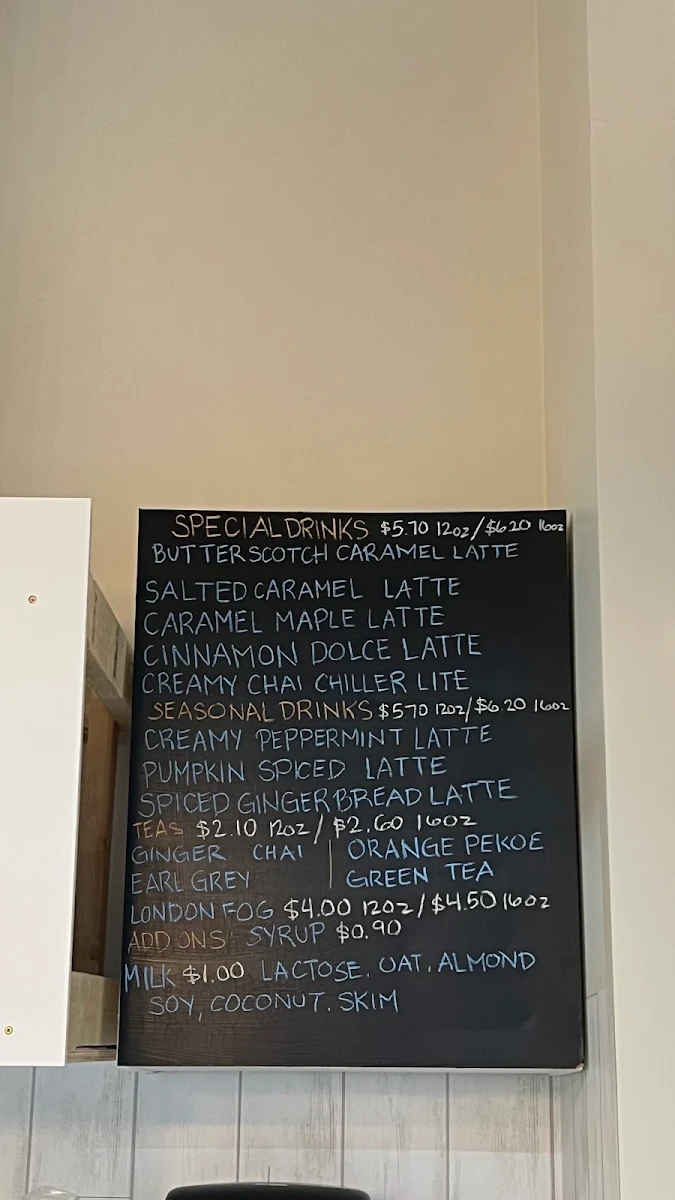 SPECIAL DRINKS $5.70 12oz/$6.20 16oz
BUTTERSCOTCH CARAMEL LATTE
SALTED CARAMEL LATTE
CARAMEL MAPLE LATTE
CINNAMON DOLCE LATTE
CREAMY CHAI CHILLER LITE
SEASONAL DRINKS $5.70 12oz/$6.20 16oz
CREAMY PEPPERMINT LATTE
PUMPKIN SPICED LATTE
SPICED GINGERBREAD LATTE
TEAS $2.10 12oz/$2.60 16oz
GINGER CHAI | ORANGE PEKOE
EARL GREY | GREEN TEA
LONDON FOG $4.00 12oz/$4.50 16oz
ADD ONS - SYRUP $0.90
MILK $1.00 LACTOSE, OAT, ALMOND
SOY, COCONUT. SKIM